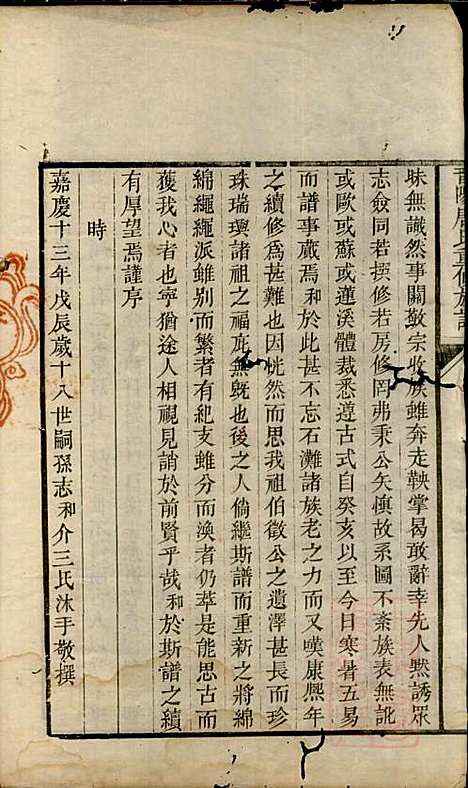 昧無識然事關敬宗收族雖奔走鞅掌曷敢辭幸先人默誘眾
志僉同若撰修若房修罔弗秉公矢慎故系圖不紊族表無訛
或歐或蘇或蓮溪體裁悉遵古式自癸亥以至今日寒暑五易
而譜事蕆焉和於此甚不忘石灘諸族老之力而又嘆康熙年
之續修為甚難也因恍然而思我祖伯徵公之遺澤甚長而珍
珠瑞璵諸祖之福庇無既也後之人倘繼斯譜而重新之將綿
綿繩繩派雖別而繁者有紀支雖分而渙者仍萃是能思古而
獲我心者也寧猶途人相視見誚於前賢乎哉和於斯譜之續
有厚望焉謹序
時
嘉慶十三年戊辰歲十八世嗣孫志和介三氏沐手敬撰